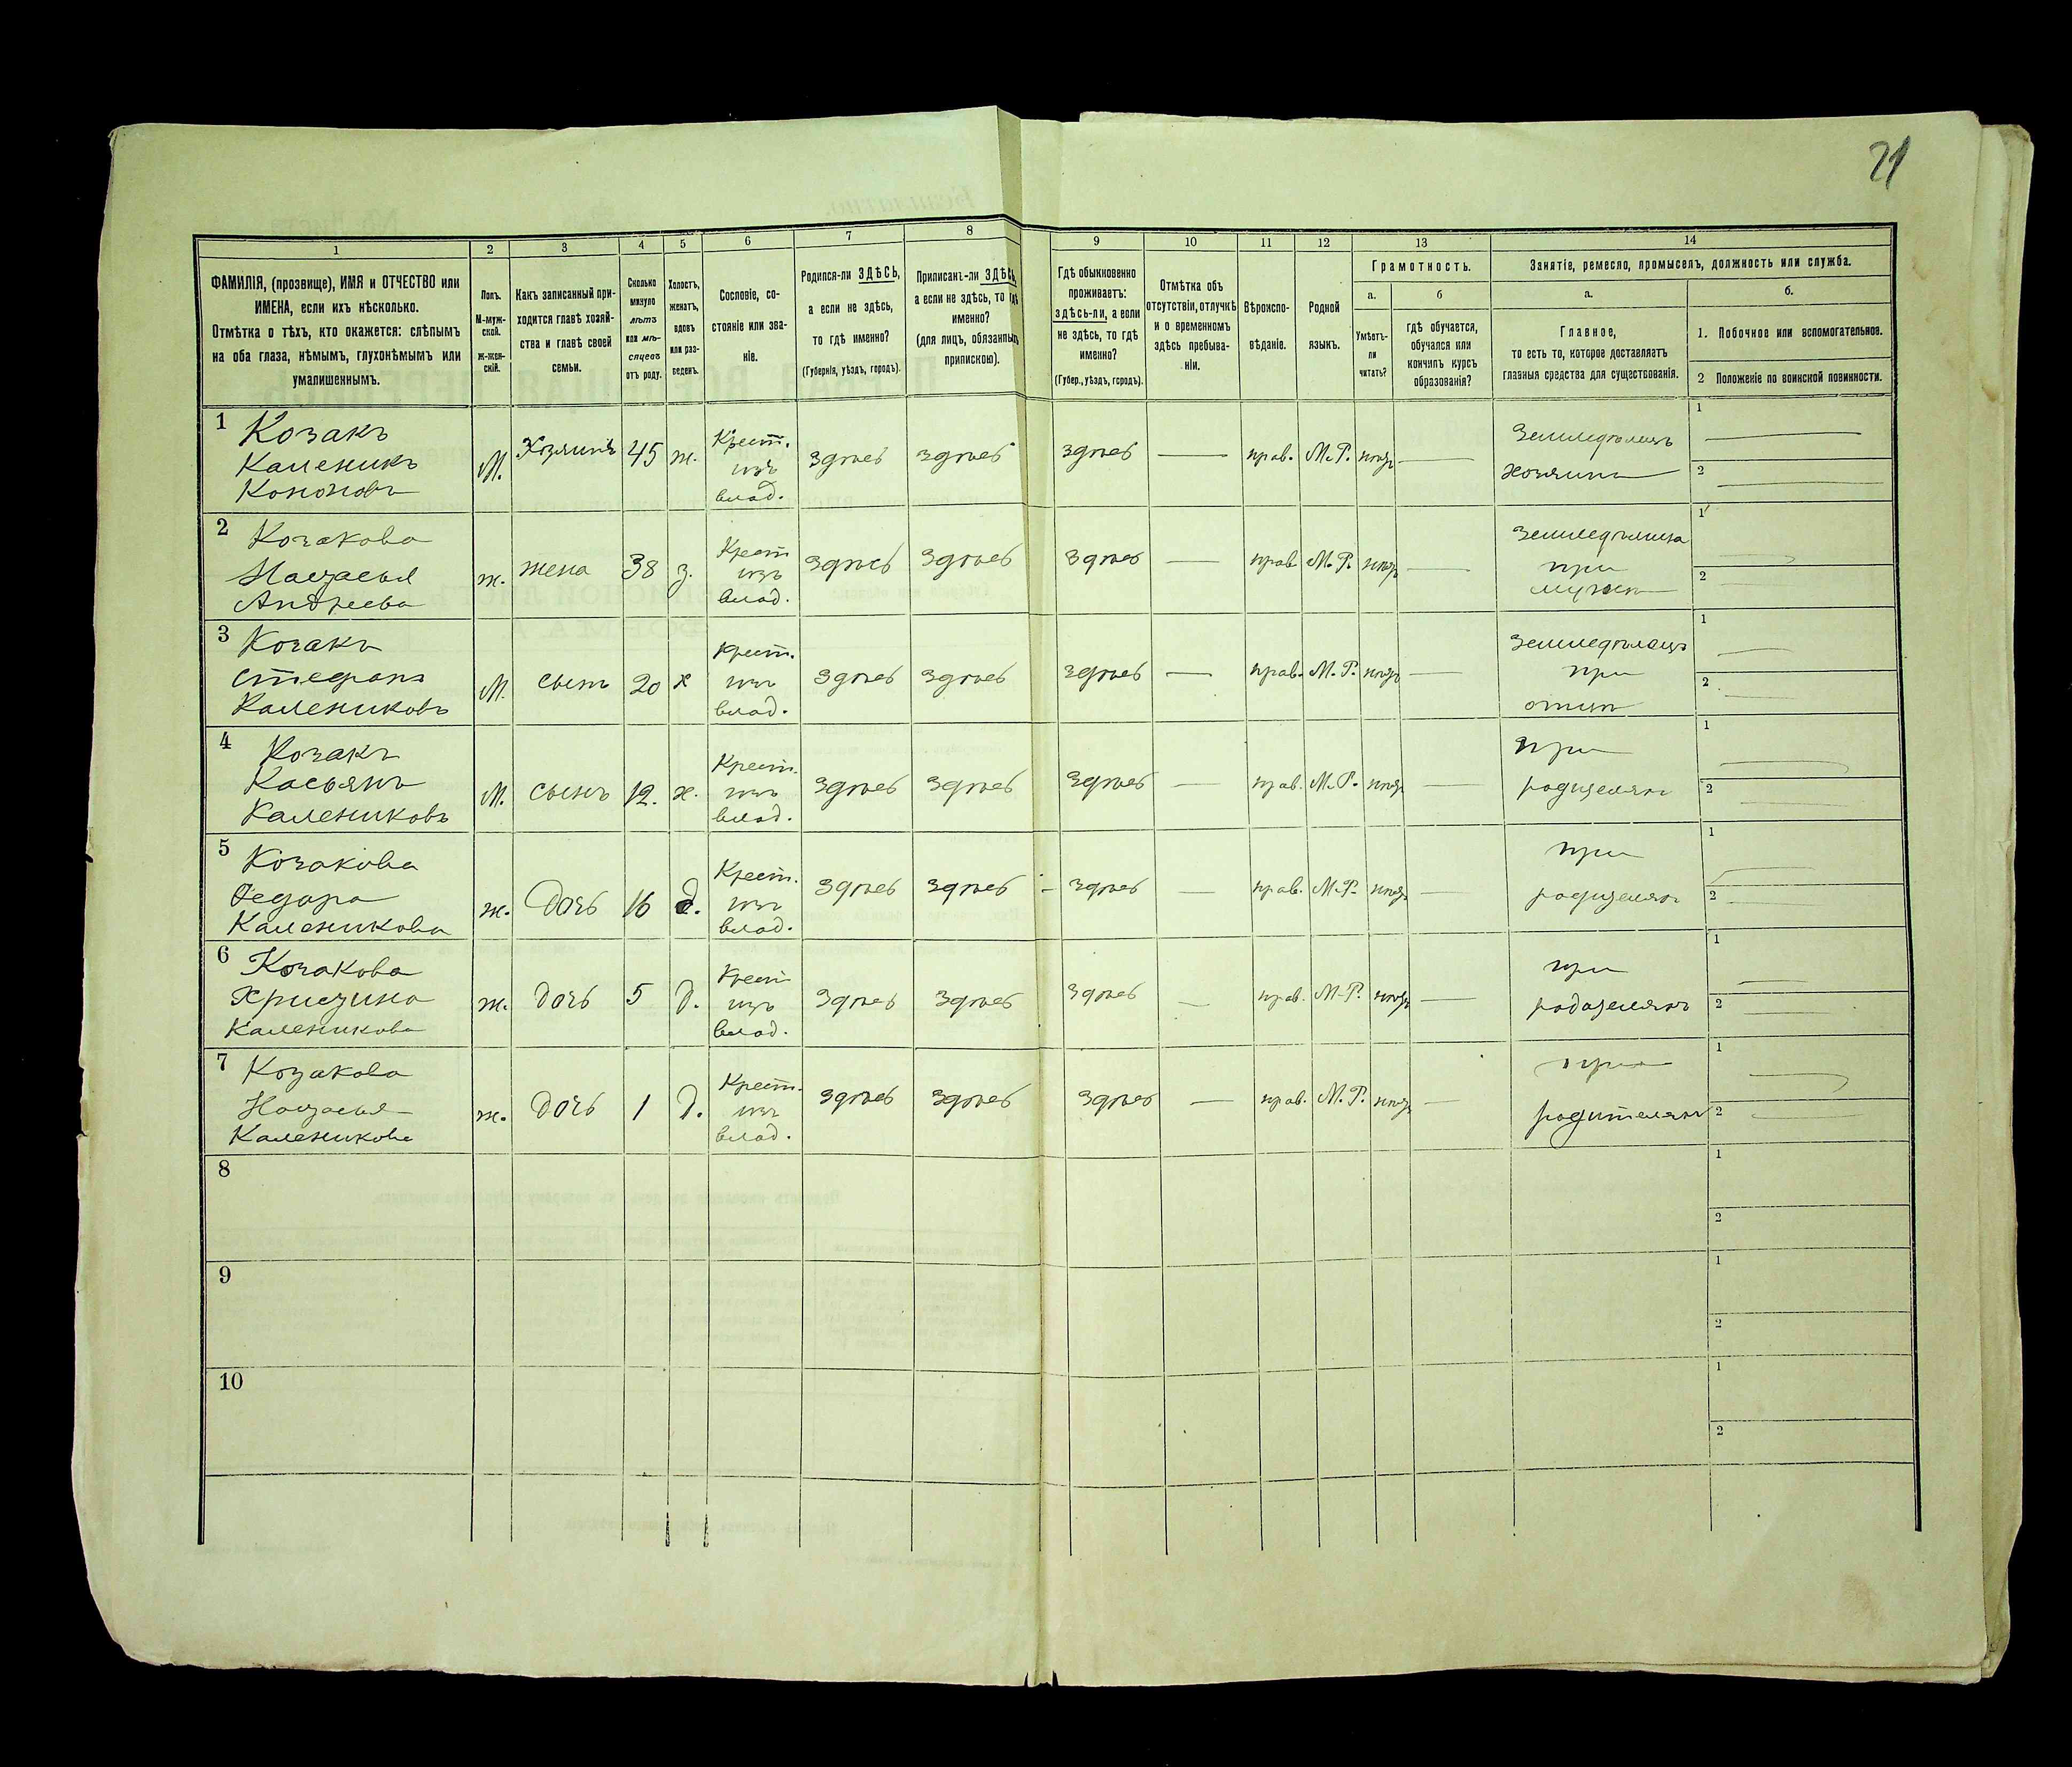 21
1 2 3 4 5 6 7 8 9 10 11 12 13 14
ФАМИЛІЯ, (прозвище), ИМЯ и ОТЧЕСТВО или
ИМЕНА, если ихъ нѣсколько.
Отмѣтка о тѣхъ, кто окажется: слѣпымъ
на оба глаза, нѣмымъ, глухонѣмымъ или
умалишеннымъ.
Полъ.
М-муж-
ской.
Ж-жен-
скій.
Какъ записанный при-
ходится главѣ хозяй-
ства и главѣ своей
семьи.
Сколько
минуло
лѣтъ
или мѣ-
сяцевъ
отъ роду.
Холостъ,
женатъ,
вдовъ
или раз-
веденъ.
Сословіе, со-
стояніе или зва-
ніе.
Родился-ли ЗДѢСЬ,
а если не здѣсь,
то гдѣ именно?
(Губернія, уѣздъ, городъ).
Приписанъ-ли ЗДѢСЬ,
а если не здѣсь, то гдѣ
именно?
(для лицъ, обязанныхъ
припискою).
Гдѣ обыкновенно
проживаетъ:
здѣсь-ли, а если
не здѣсь, то гдѣ
именно?
(Губер., уѣздъ, городъ).
Отмѣтка объ
отсутствіи, отлучкѣ
и о временномъ
здѣсь пребыва-
ніи.
Вѣроиспо-
вѣданіе.
Родной
языкъ.
Грамотность.
а.
Умѣетъ-
ли
читать?
б
гдѣ обучается,
обучался или
кончилъ курсъ
образованія?
Занятіе, ремесло, промыселъ, должность или служба.
а.
Главное,
то есть то, которое доставляетъ
главныя средства для существованія.
б.
1. Побочное или вспомогательное.
2 Положеніе по воинской повинности.
1 Козакъ
Каленикъ
Кононовъ
М. Хозяинъ 45 ж.
Крест.
изъ
влад.
здѣсь здѣсь здѣсь — прав. М.Р. нѣтъ —
Земледѣлецъ
хозяинъ
1
2
2 Козакова
Настасья
Андреева
ж. жена 38 з.
Крест
изъ
влад.
здѣсь здѣсь здѣсь — прав. М.Р. нѣтъ —
земледѣлица
при
мужѣ
1
2
3 Козакъ
Стефанъ
Калениковъ
М. сынъ 20 х
Крест.
изъ
влад.
здѣсь здѣсь здѣсь — прав. М.Р. нѣтъ —
земледѣлецъ
при
отцѣ
1
2
4 Козакъ
Касьянъ
Калениковъ
М. сынъ 12. х.
Крест.
изъ
влад.
здѣсь здѣсь здѣсь — прав. М.Р. нѣтъ —
при
родителяхъ
1
2
5 Козакова
Федора
Каленикова
ж. дочь 16 д.
Крест.
изъ
влад.
здѣсь здѣсь здѣсь — прав. М.Р. нѣтъ —
при
родителяхъ
1
2
6 Козакова
Христина
Каленикова
ж. дочь 5 д.
Крест
изъ
влад.
здѣсь здѣсь здѣсь — прав. М.Р. нѣтъ —
при
родителяхъ
1
2
7 Козакова
Настасья
Каленикова
ж. дочь 1 д.
Крест.
изъ
влад.
здѣсь здѣсь здѣсь — прав. М.Р. нѣтъ —
при
родителяхъ
1
2
8
1
2
9
1
2
10
1
2